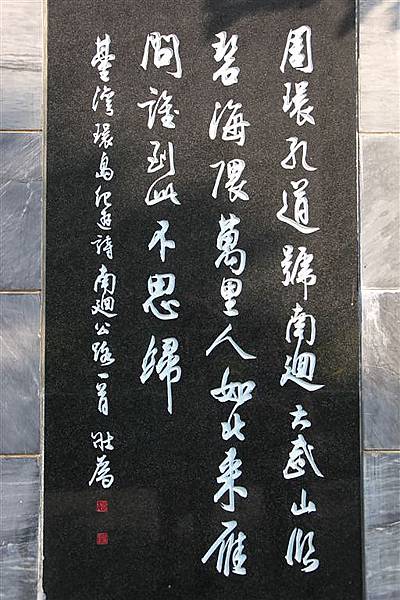 周環孔道號南廻大武山臨
碧海隈萬里人如北来雁
問誰到此不思歸
臺灣環島紀遊詩南廻公路一首 壯為